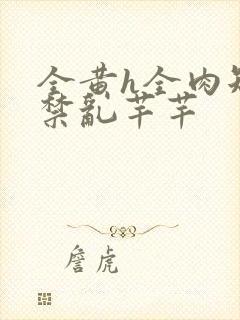 全黄h全肉短
禁乱芊芊
詹虎